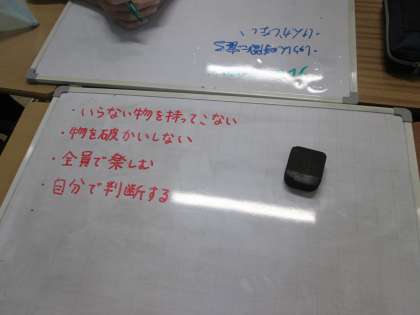 ・いらない物を持ってこない
・物を破かいしない
・全員で楽しむ
・自分で判断する
・けんかしない